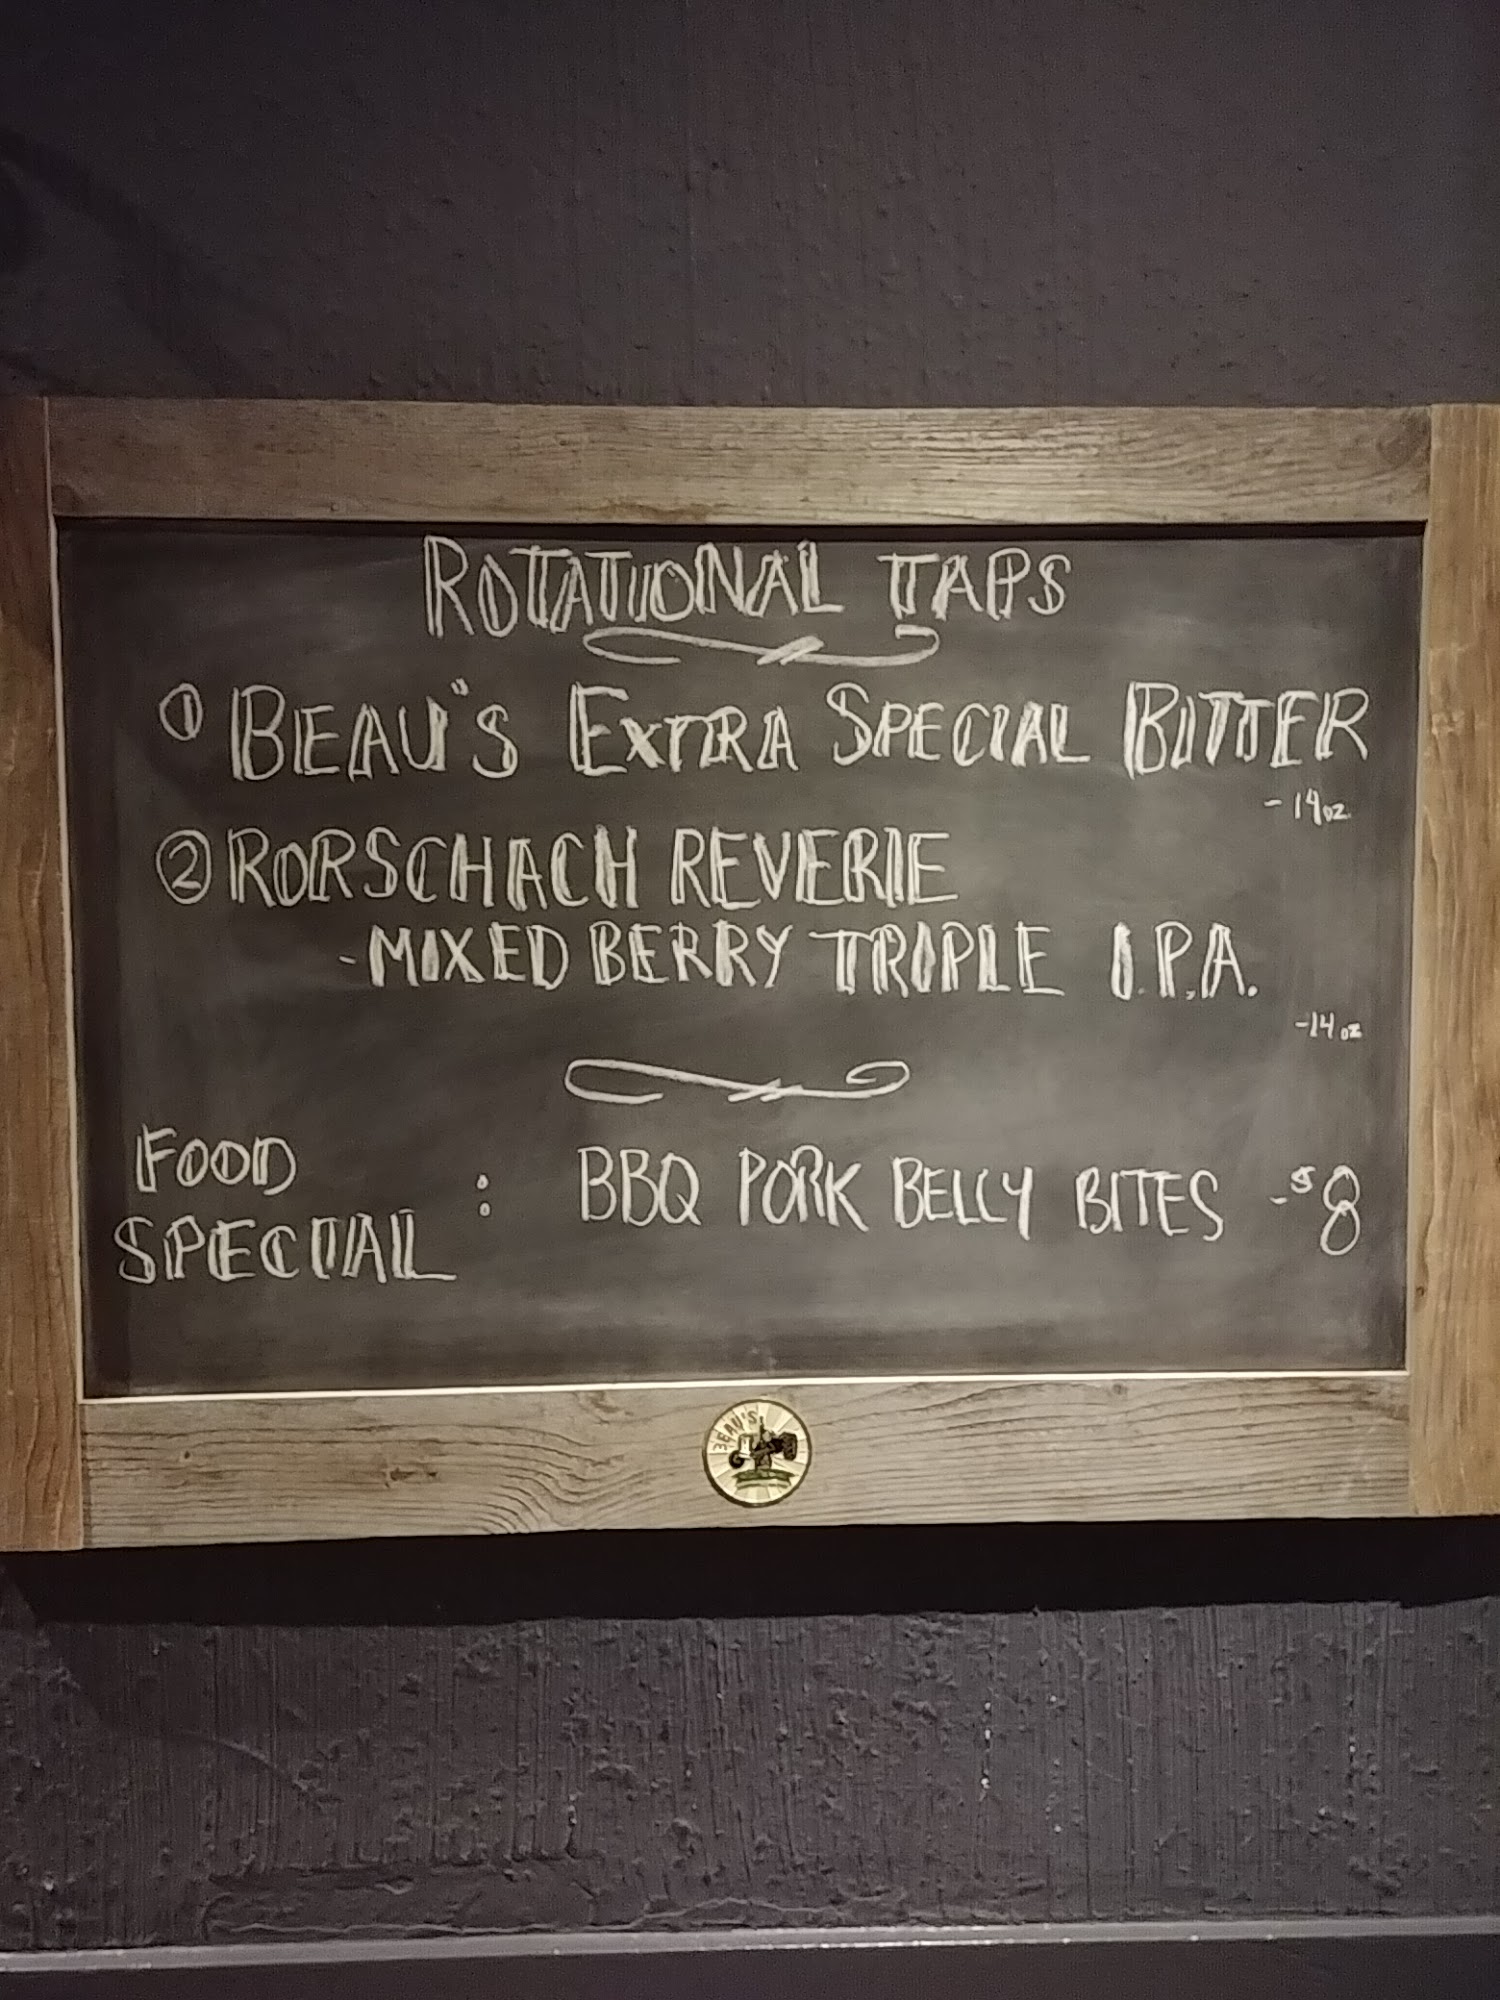 ROTATIONAL TAPS
① BEAU"S EXTRA SPECIAL BITTER
- 14oz.
② RORSCHACH REVERIE
- MIXED BERRY TRIPLE I.P.A.
- 14 oz
FOOD
SPECIAL : BBQ PORK BELLY BITES - $8
BEAU'S